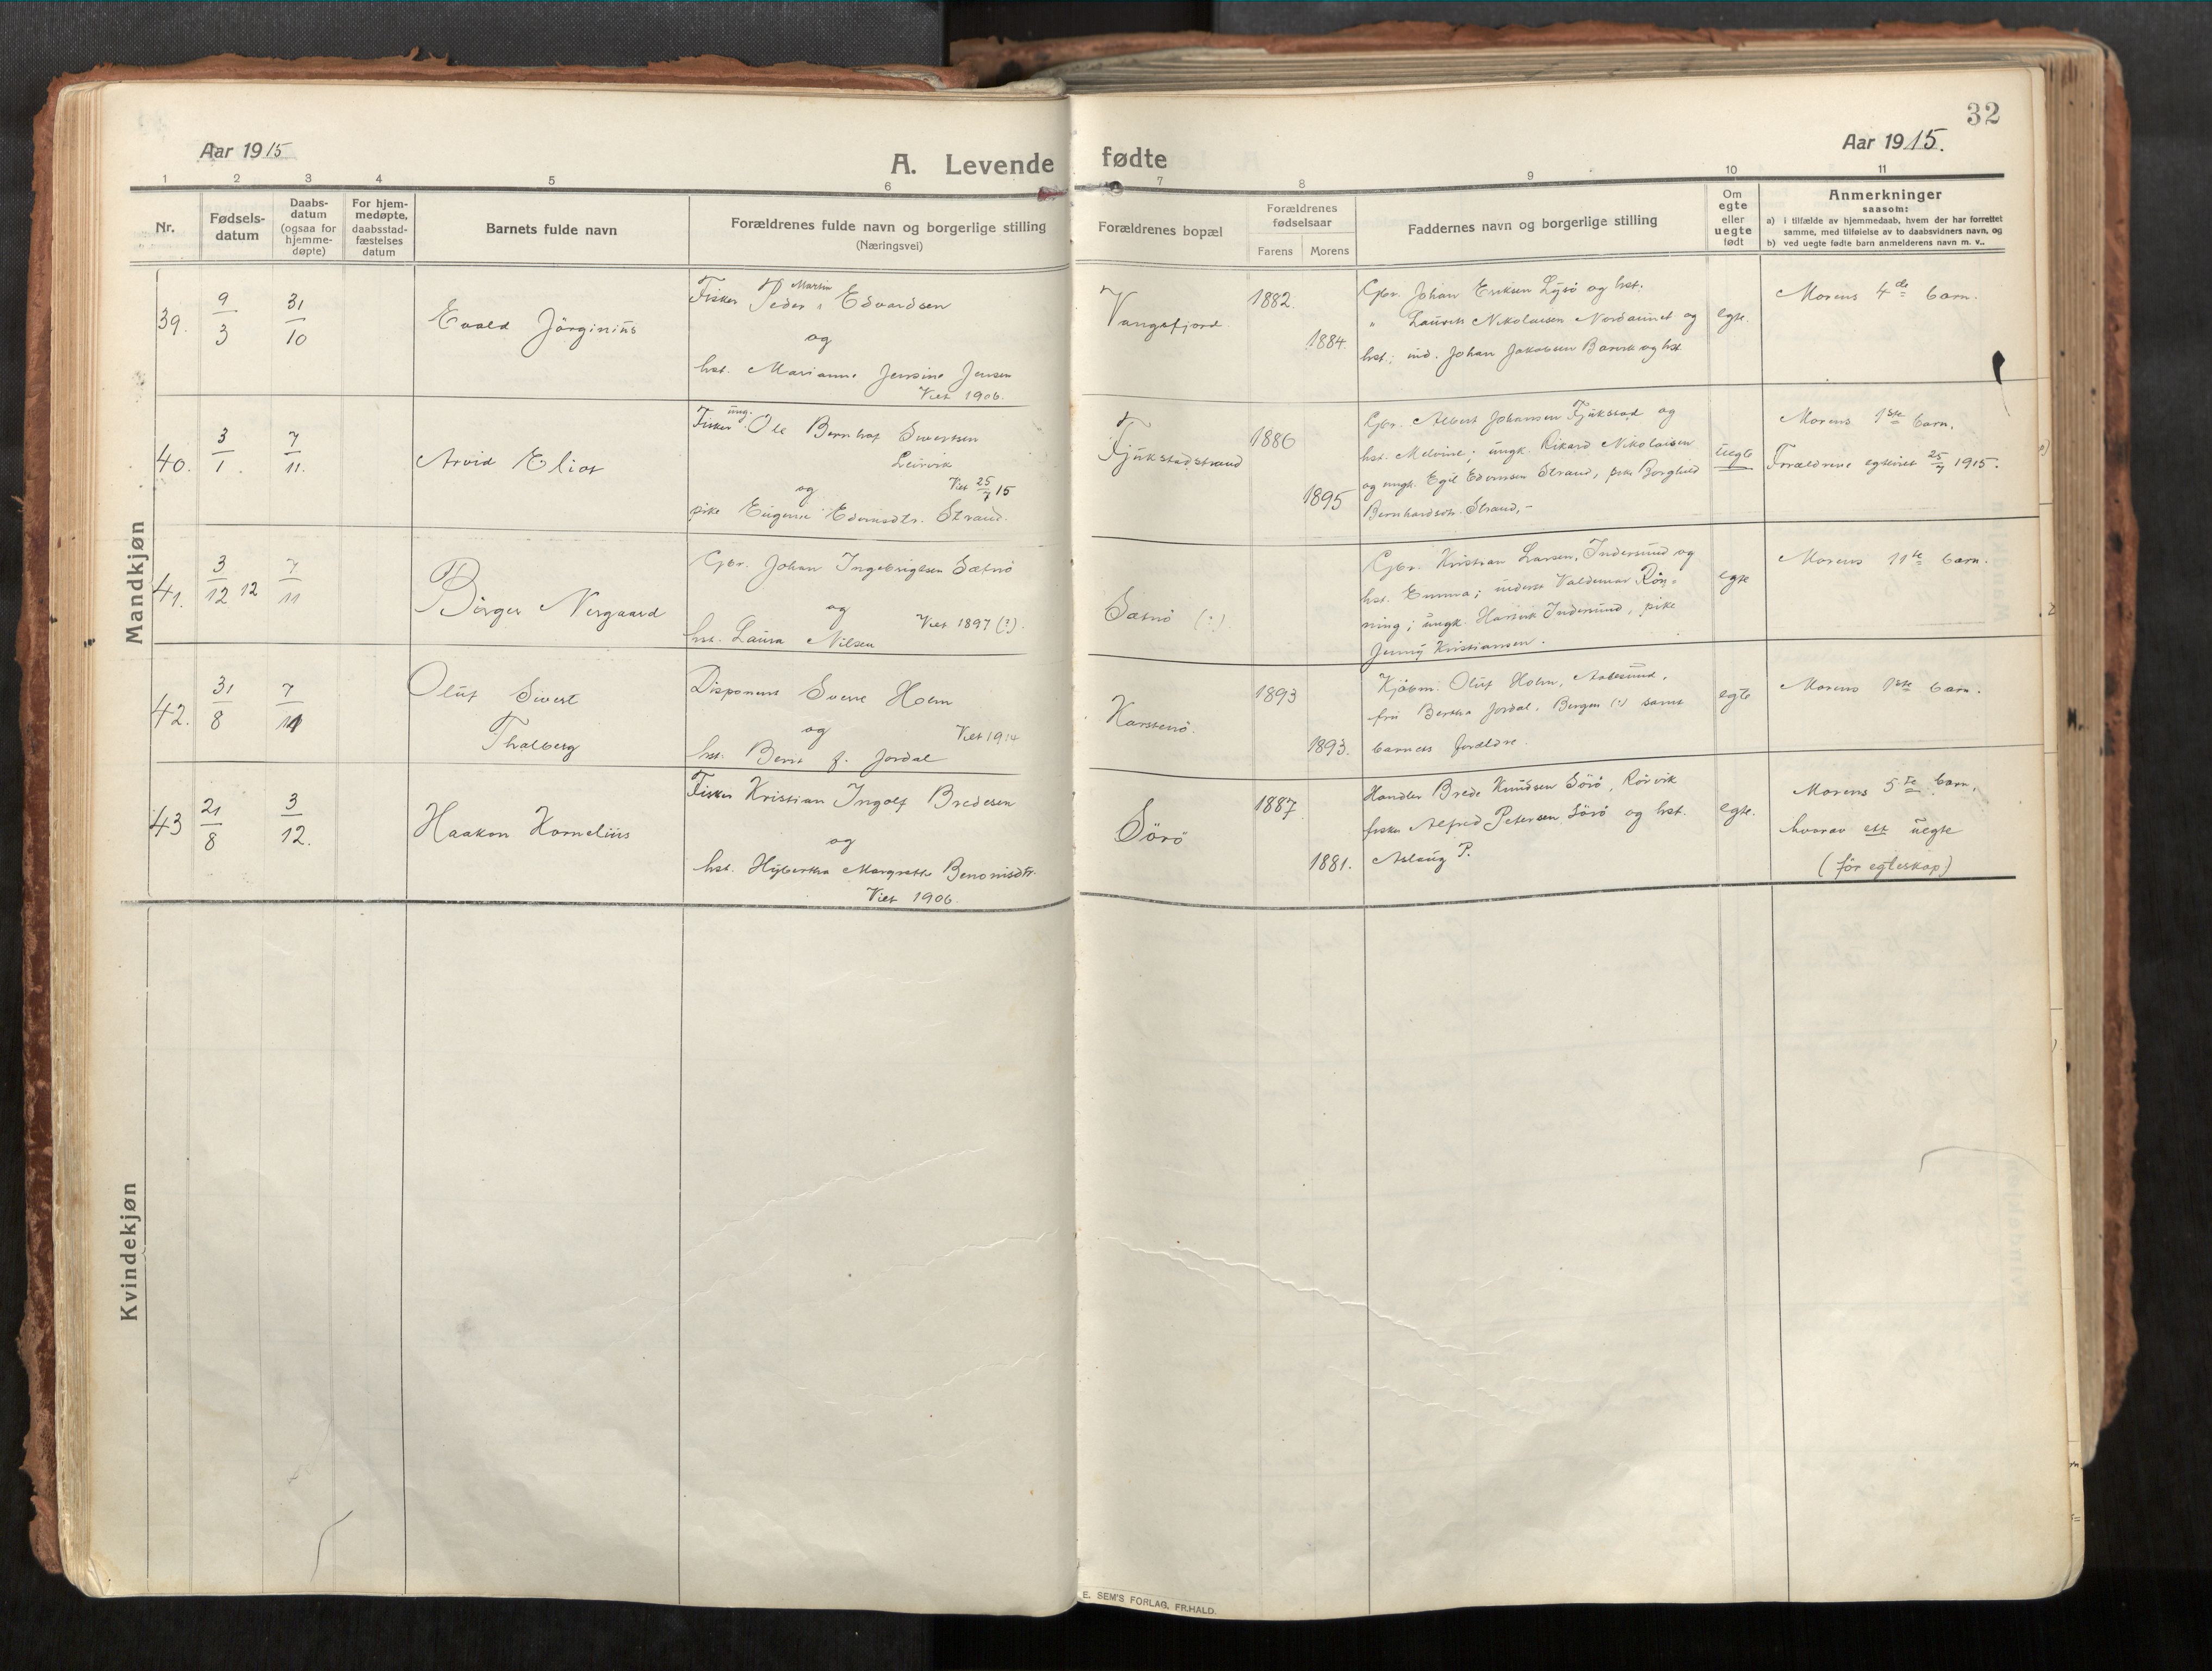 32
Aar 1915
Aar 1915.
A. Levende fødte
1 2 3 4 5 6 7 8 9 10 11
Nr.
Fødsels-
datum
Daabs-
datum
(ogsaa for
hjemme-
døpte)
For hjem-
medøpte,
daabsstad-
fæstelses
datum
Barnets fulde navn
Forældrenes fulde navn og borgerlige stilling
(Næringsvei)
Forældrenes bopæl
Forældrenes
fødselsaar
Farens Morens
Faddernes navn og borgerlige stilling
Om
egte
eller
uegte
født
Anmerkninger
saasom:
a) i tilfælde av hjemmedaab, hvem der har forrettet
samme, med tilføielse av to daabsvidners navn, og
b) ved uegte fødte barn anmelderens navn m. v..
Mandkjøn
39.
9/3
31/10
Evald Jörginius
Fisker Peder Martin Edvardsen
og
hst. Marianne Jensine Jensen
Viet 1906.
Vangsfjord.
1882.
1884.
Gbr. Johan Eriksen Lysö og hst.
" Laurits Nikolaisen Nordaunet og
hst; ind. Johan Jakobsen Barvik og hst.
egte.
Morens 4de barn.
40.
3/1.
7/11.
Arvid Eliot
Fisker ung. Ole Bernhof Sivertsen
Leirvik
og Viet 25/7 15
pike Eugenie Edvinsdtr. Strand.
Fjukstadstrand
1886
1895
Gbr. Albert Johansen Fjukstad og
hst. Melvine; ungk. Rikard Nikolaisen
og ungk. Egil Edvinsen Strand, pike Borghild
Bernhardsdtr. Strand,-
uegte
Morens 1ste barn.
Forældrene egteviet 25/7 1915.
41.
3/12 12
7/11
Birger Nergaard
Gbr. Johan Ingebrigtsen Sætnö
og
hst. Laura Nilsen Viet 1897 (?).
Sætnö (:).
Gbr. Kristian Larsen, Indersund og
hst. Emma; inderst Valdemar Rön-
ning; ungk. Hartvik Indersund, pike
Jenny Kristiansen.
egte
Morens 11te barn.
42.
31/8
7/11
Oluf Sivert
Thalberg
Disponent Sverre Holm
og Viet 1914
hst. Berit f. Jordal
Karstenö.
1893
1893.
Kjöbm. Oluf Holm, Aalesund,
fru Bertha Jordal, Bergen (:) samt
barnets forældre.
egte
Morens 1ste barn.
43
21/8
3/12.
Haakon Kornelius
Fisker Kristian Ingolf Bredesen
og
hst. Hybertha Margrethe Benonisdtr.
Viet 1906.
Sörö
1887
1881.
Handler Brede Knudsen Sörö, Rörvik
fisker Alfred Petersen Sörö og hst.
Aslaug P.
egte.
Morens 5te barn,
hvorav ett uegte
(för egteskap)
Kvindekjøn
E. SEM'S FORLAG, FR.HALD.